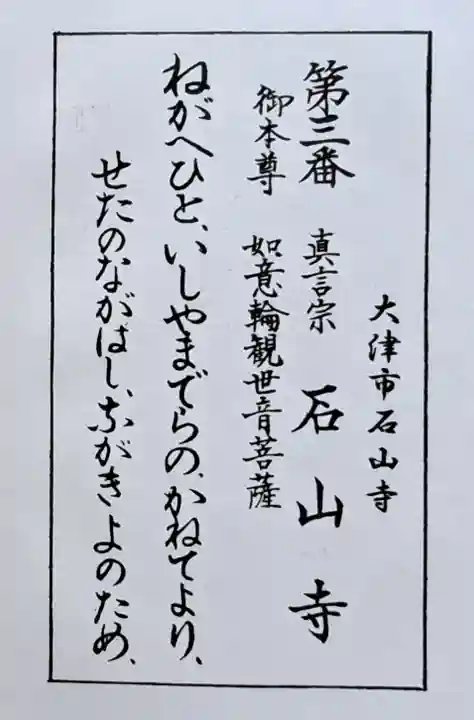 大津市石山寺
第三番 真言宗 石山寺
御本尊 如意輪観世音菩薩
ねがへひと、いしやまでらの、かねてより、
せたのながはし、ながきよのため、